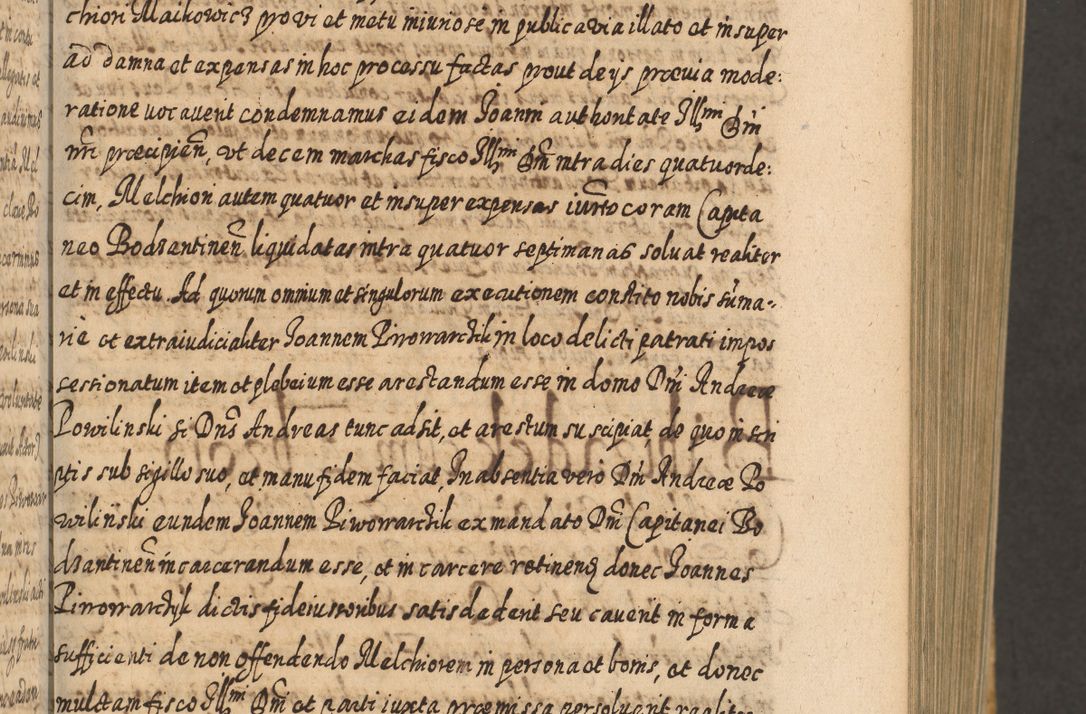 chiori Maikowicz pro vi et metu miunose in publica via illato et insuper
ad damna et expensas in hoc processu factas prout de ijs prævia mode:
ratione vocavent condemnamus eidem Joanni authoritate Illmi Dni
nri præcipien, vt decem marchas fisco Illmi Dni intra dies quatuorde:
cim, Melchiori autem quatuor et insuper expensas iuxto coram Capita
neo Bodzantinen liquidatas intra quatuor septimanas solvat realiter
et in effectu. Ad quorum omnium et singulorum executionem constito nobis suma-
riè et extraiudicialiter Joannem Piwowarchik in loco delicti patrati impos
sessionatum item et plebeium esse arestandum esse in domo Dni Andreæ
Powilinski si Dns Andreas tunc adsit, et arestum suscipiat de quo in scri
ptis sub sigillo suo, et manu fidem faciat, In absentia verò Dni Andreæ Po
wilinski eundem Joannem Piwowarchik ex mandato Dni Capitanei Bo
dzantinen incarcerandum esse, et in carcere retinend donec Joannes
Piwowarchyk dictis fideiussoribus satis dederit seu caverit in forma
sufficienti de non offendendo Melchiorem in persona et bonis, et donec
multam fisco Illmi Dni et parti iuxta præmissa persolverit realiter